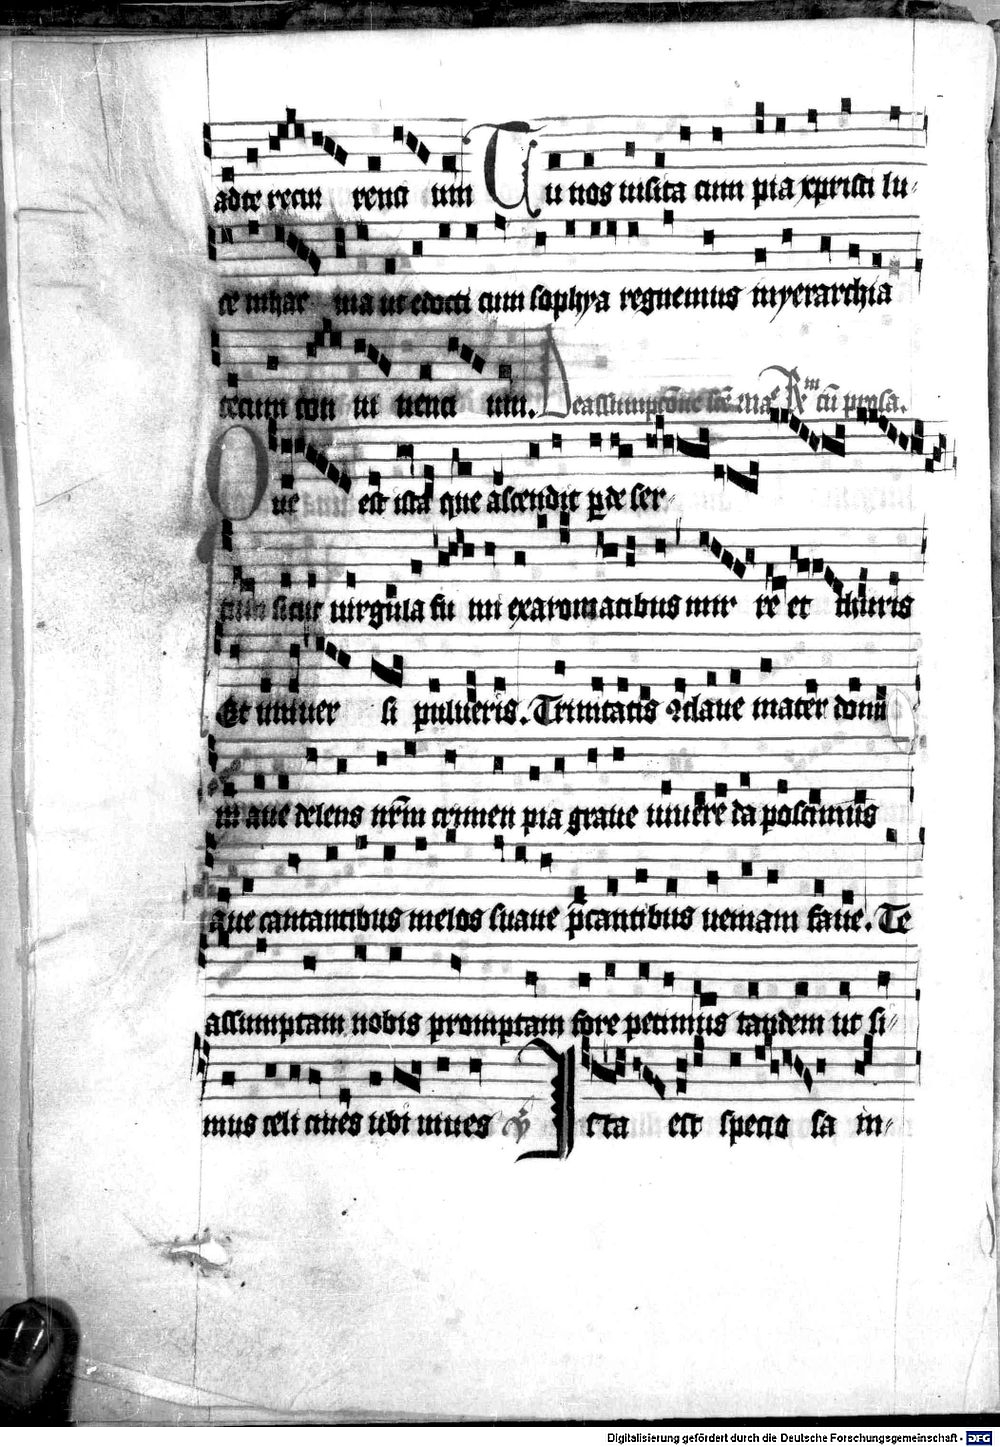 ad te recur renci um Tu nos uisita cum pia xpristi lu-
ce in hac uia ut edocti cum sophya regnemus in yerarchia
tecum con ui uenci um. De assumptõne stẽ Maⁱᵉ Rm cũ prosa.
Que est ista que ascendit p de ser-
tum sicut uirgula fu mi ex aromatibus mir re et thuris
Et uniuer si pulueris. Trinitatis ꝯclaue mater domi
ni aue delens nr̃m crimen pia graue uiuere da poscimus
aue cantantibus melos suaue p̃cantibus ueniam faue. Te
assumptam nobis promptam fore petimus tandem ut si-
mus celi ciues ubi uiues Ista est specio sa in-
Digitalisierung gefördert durch die Deutsche Forschungsgemeinschaft - DFG